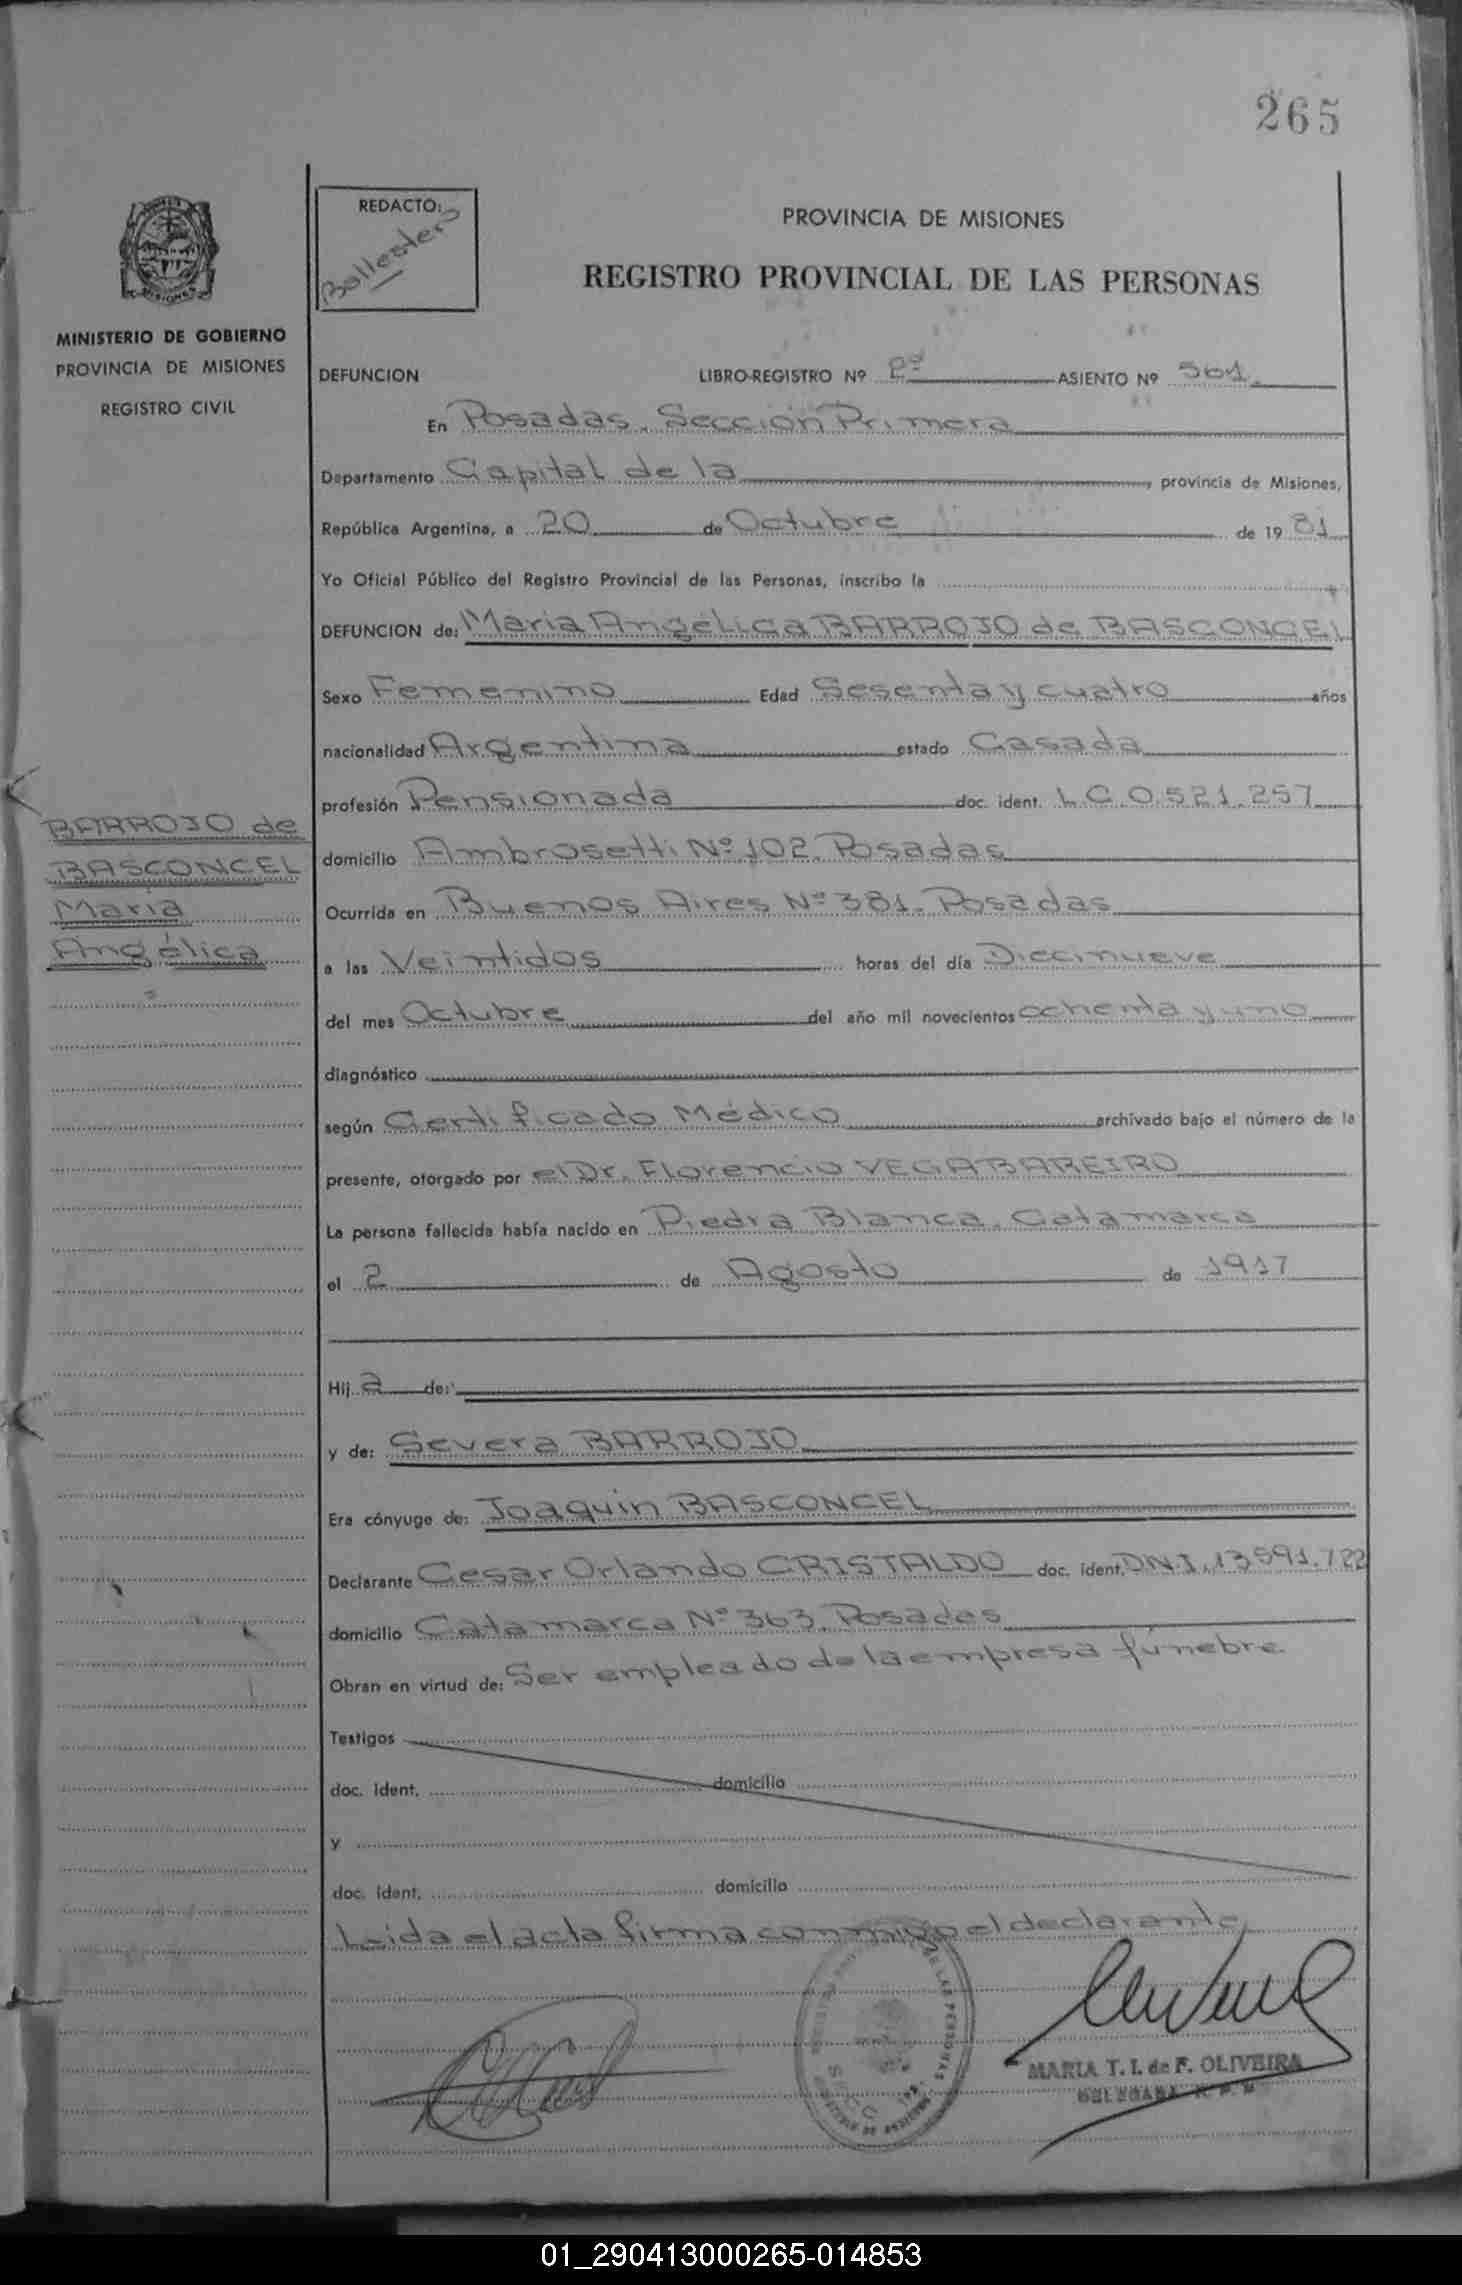 265
REDACTO:
Ballester
MINISTERIO DE GOBIERNO
PROVINCIA DE MISIONES
REGISTRO CIVIL
BARROJO de
BASCONCEL
Maria
Angélica
PROVINCIA DE MISIONES
REGISTRO PROVINCIAL DE LAS PERSONAS
DEFUNCION LIBRO-REGISTRO Nº 2º ASIENTO Nº 561
En Posadas, Sección Primera
Departamento Capital de la, provincia de Misiones,
República Argentina, a 20 de Octubre de 1981
Yo Oficial Público del Registro Provincial de las Personas, inscribo la
DEFUNCION de: Maria Angélica BARROJO de BASCONCEL
Sexo Femenino Edad Sesenta y cuatro años
nacionalidad Argentina estado Casada
profesión Pensionada doc. ident. L.C. 0.521.257
domicilio Ambrosetti Nº 102, Posadas
Ocurrida en Buenos Aires Nº 381, Posadas
a las Veintidos horas del día Diecinueve
del mes Octubre del año mil novecientos ochenta y uno
diagnóstico
según Certificado Médico archivado bajo el número de la
presente, otorgado por el Dr. Florencio VEGA BAREIRO
La persona fallecida había nacido en Piedra Blanca, Catamarca
el 2 de Agosto de 1917
Hij a de:
y de: Severa BARROJO
Era cónyuge de: Joaquin BASCONCEL
Declarante Cesar Orlando CRISTALDO doc. ident. D.N.I. 13.591.722
domicilio Catamarca Nº 363, Posadas
Obran en virtud de: Ser empleado de la empresa fúnebre
Testigos
doc. ident. domicilio
y
doc. ident. domicilio
Leida el acta firma conmigo el declarante
MARIA T. I. de F. OLIVEIRA
DELEGADA R. P. P.
01_290413000265-014853